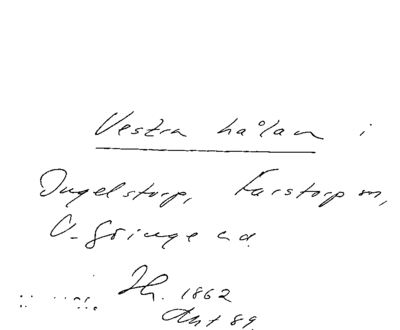 Vestra hålan i
Ingelstorp, Farstorp sn,
V. Göinge hd.
Th. 1862
Ant 89